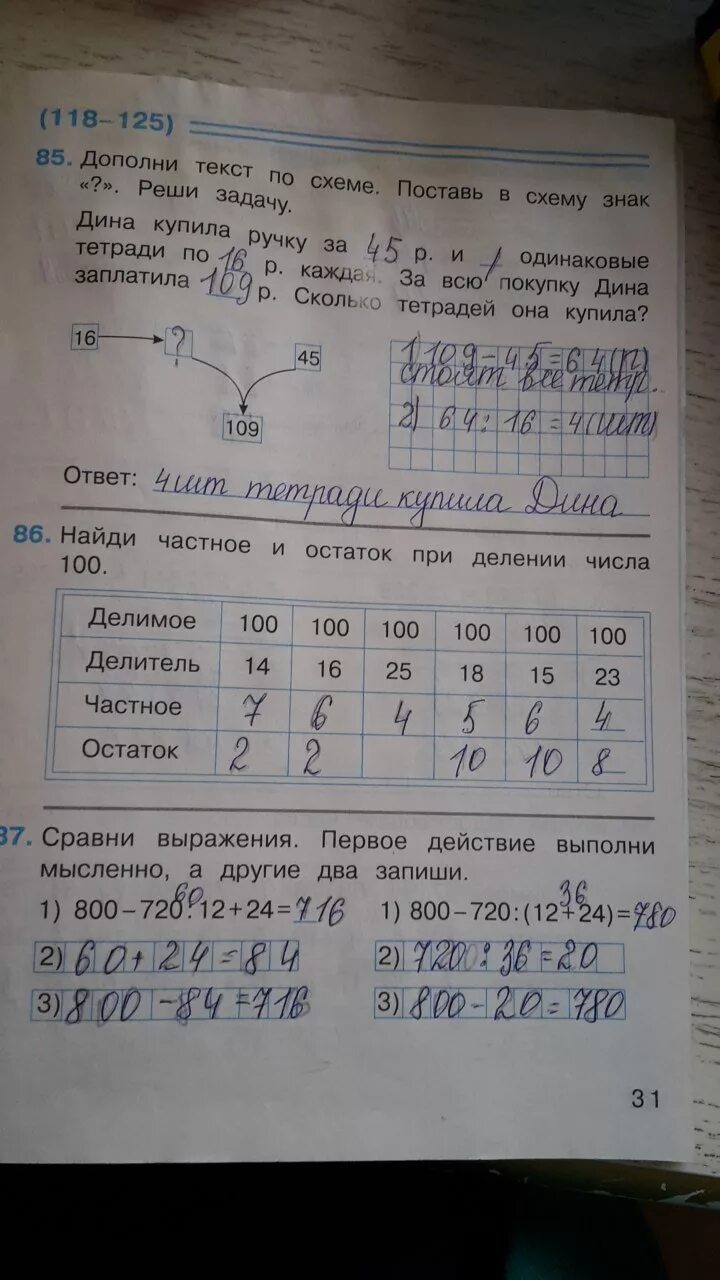 (118–125)
85. Дополни текст по схеме. Поставь в схему знак
«?». Реши задачу.
Дина купила ручку за 45 р. и одинаковые
тетради по 16 р. каждая. За всю покупку Дина
заплатила 109 р. Сколько тетрадей она купила?
16 ?
45
109
1) 109-45=64(п)
стоят все тетр.
2) 64:16=4(шт)
Ответ: 4 шт тетради купила Дина
86. Найди частное и остаток при делении числа
100.
Делимое 100 100 100 100 100 100
Делитель 14 16 25 18 15 23
Частное 7 6 4 5 6 4
Остаток 2 2 10 10 8
87. Сравни выражения. Первое действие выполни
мысленно, а другие два запиши.
60 36
1) 800–720:12+24=716 1) 800–720:(12+24)=780
2) 60+24=84 2) 720:36=20
3) 800-84=716 3) 800-20=780
31